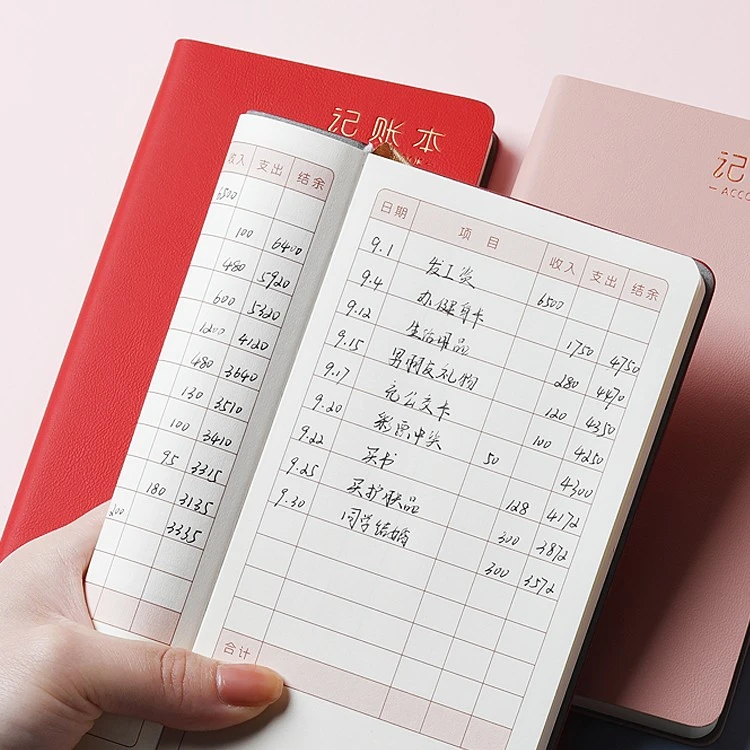 记账本
记
ACCO
收入 支出 结余
6500
100 6400
480 5920
600 5320
1200 4120
480 3640
130 3510
100 3410
95 3315
180 3135
200 3335
日期 项目 收入 支出 结余
9.1 发工资 6500
9.4 办健身卡 1750 4750
9.12 生活用品 280 4470
9.15 男朋友礼物 120 4350
9.17 充公交卡 100 4250
9.20 彩票中奖 50 4300
9.22 买书 128 4172
9.25 买护肤品 300 3872
9.30 同学结婚 300 3572
合计